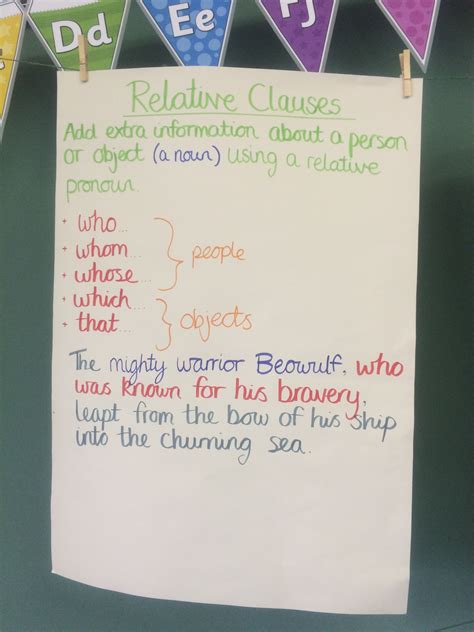 Dd Ee Fj
Relative Clauses
Add extra information about a person
or object (a noun) using a relative
pronoun.
• who...
• whom...
• whose...
people
• which...
• that...
objects
The mighty warrior Beowulf, who
was known for his bravery,
leapt from the bow of his ship
into the churning sea.